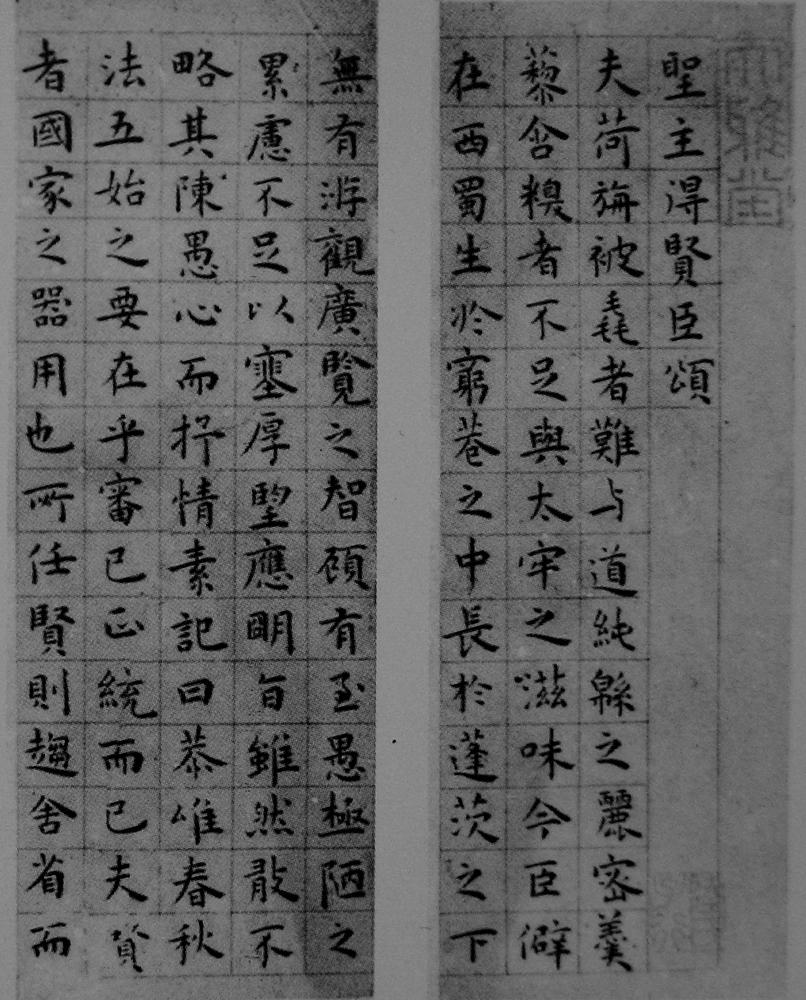 聖主得賢臣頌
夫荷旃被毳者難与道純緜之麗密羹
藜唅糗者不足與太牢之滋味今臣僻
在西蜀生於窮巷之中長於蓬茨之下
無有游觀廣覧之智顧有至愚極陋之
累慮不足以塞厚望應明旨雖然敢不
略其陳愚心而抒情素記曰恭惟春秋
法五始之要在乎審己正統而已夫賢
者國家之器用也所任賢則趨舍省而